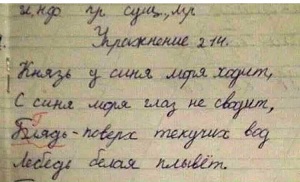 гр сущ.,
Упражнение 214.
Князь у синя моря ходит,
С синя моря глаз не сводит,
Блядь-поверх текучих вод
Лебедь белая плывёт.